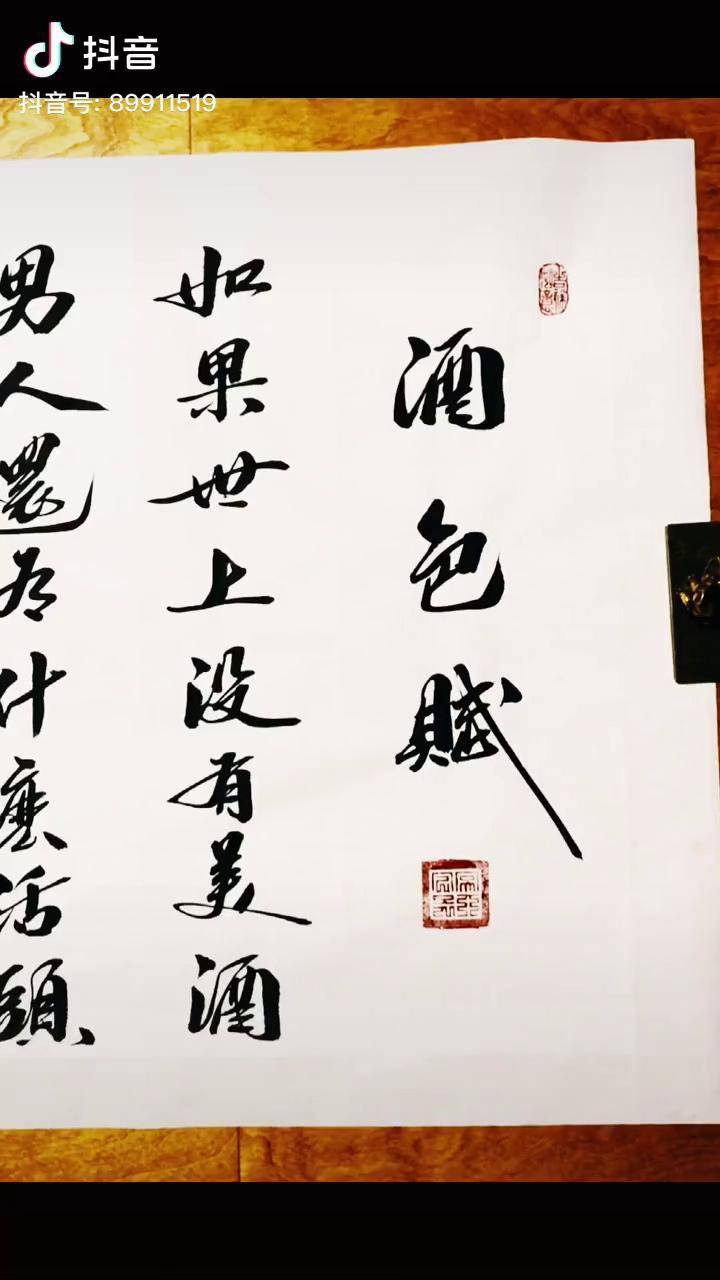 抖音
抖音号: 89911519
酒色賦
如果世上没有美酒
男人還有什麼活頭